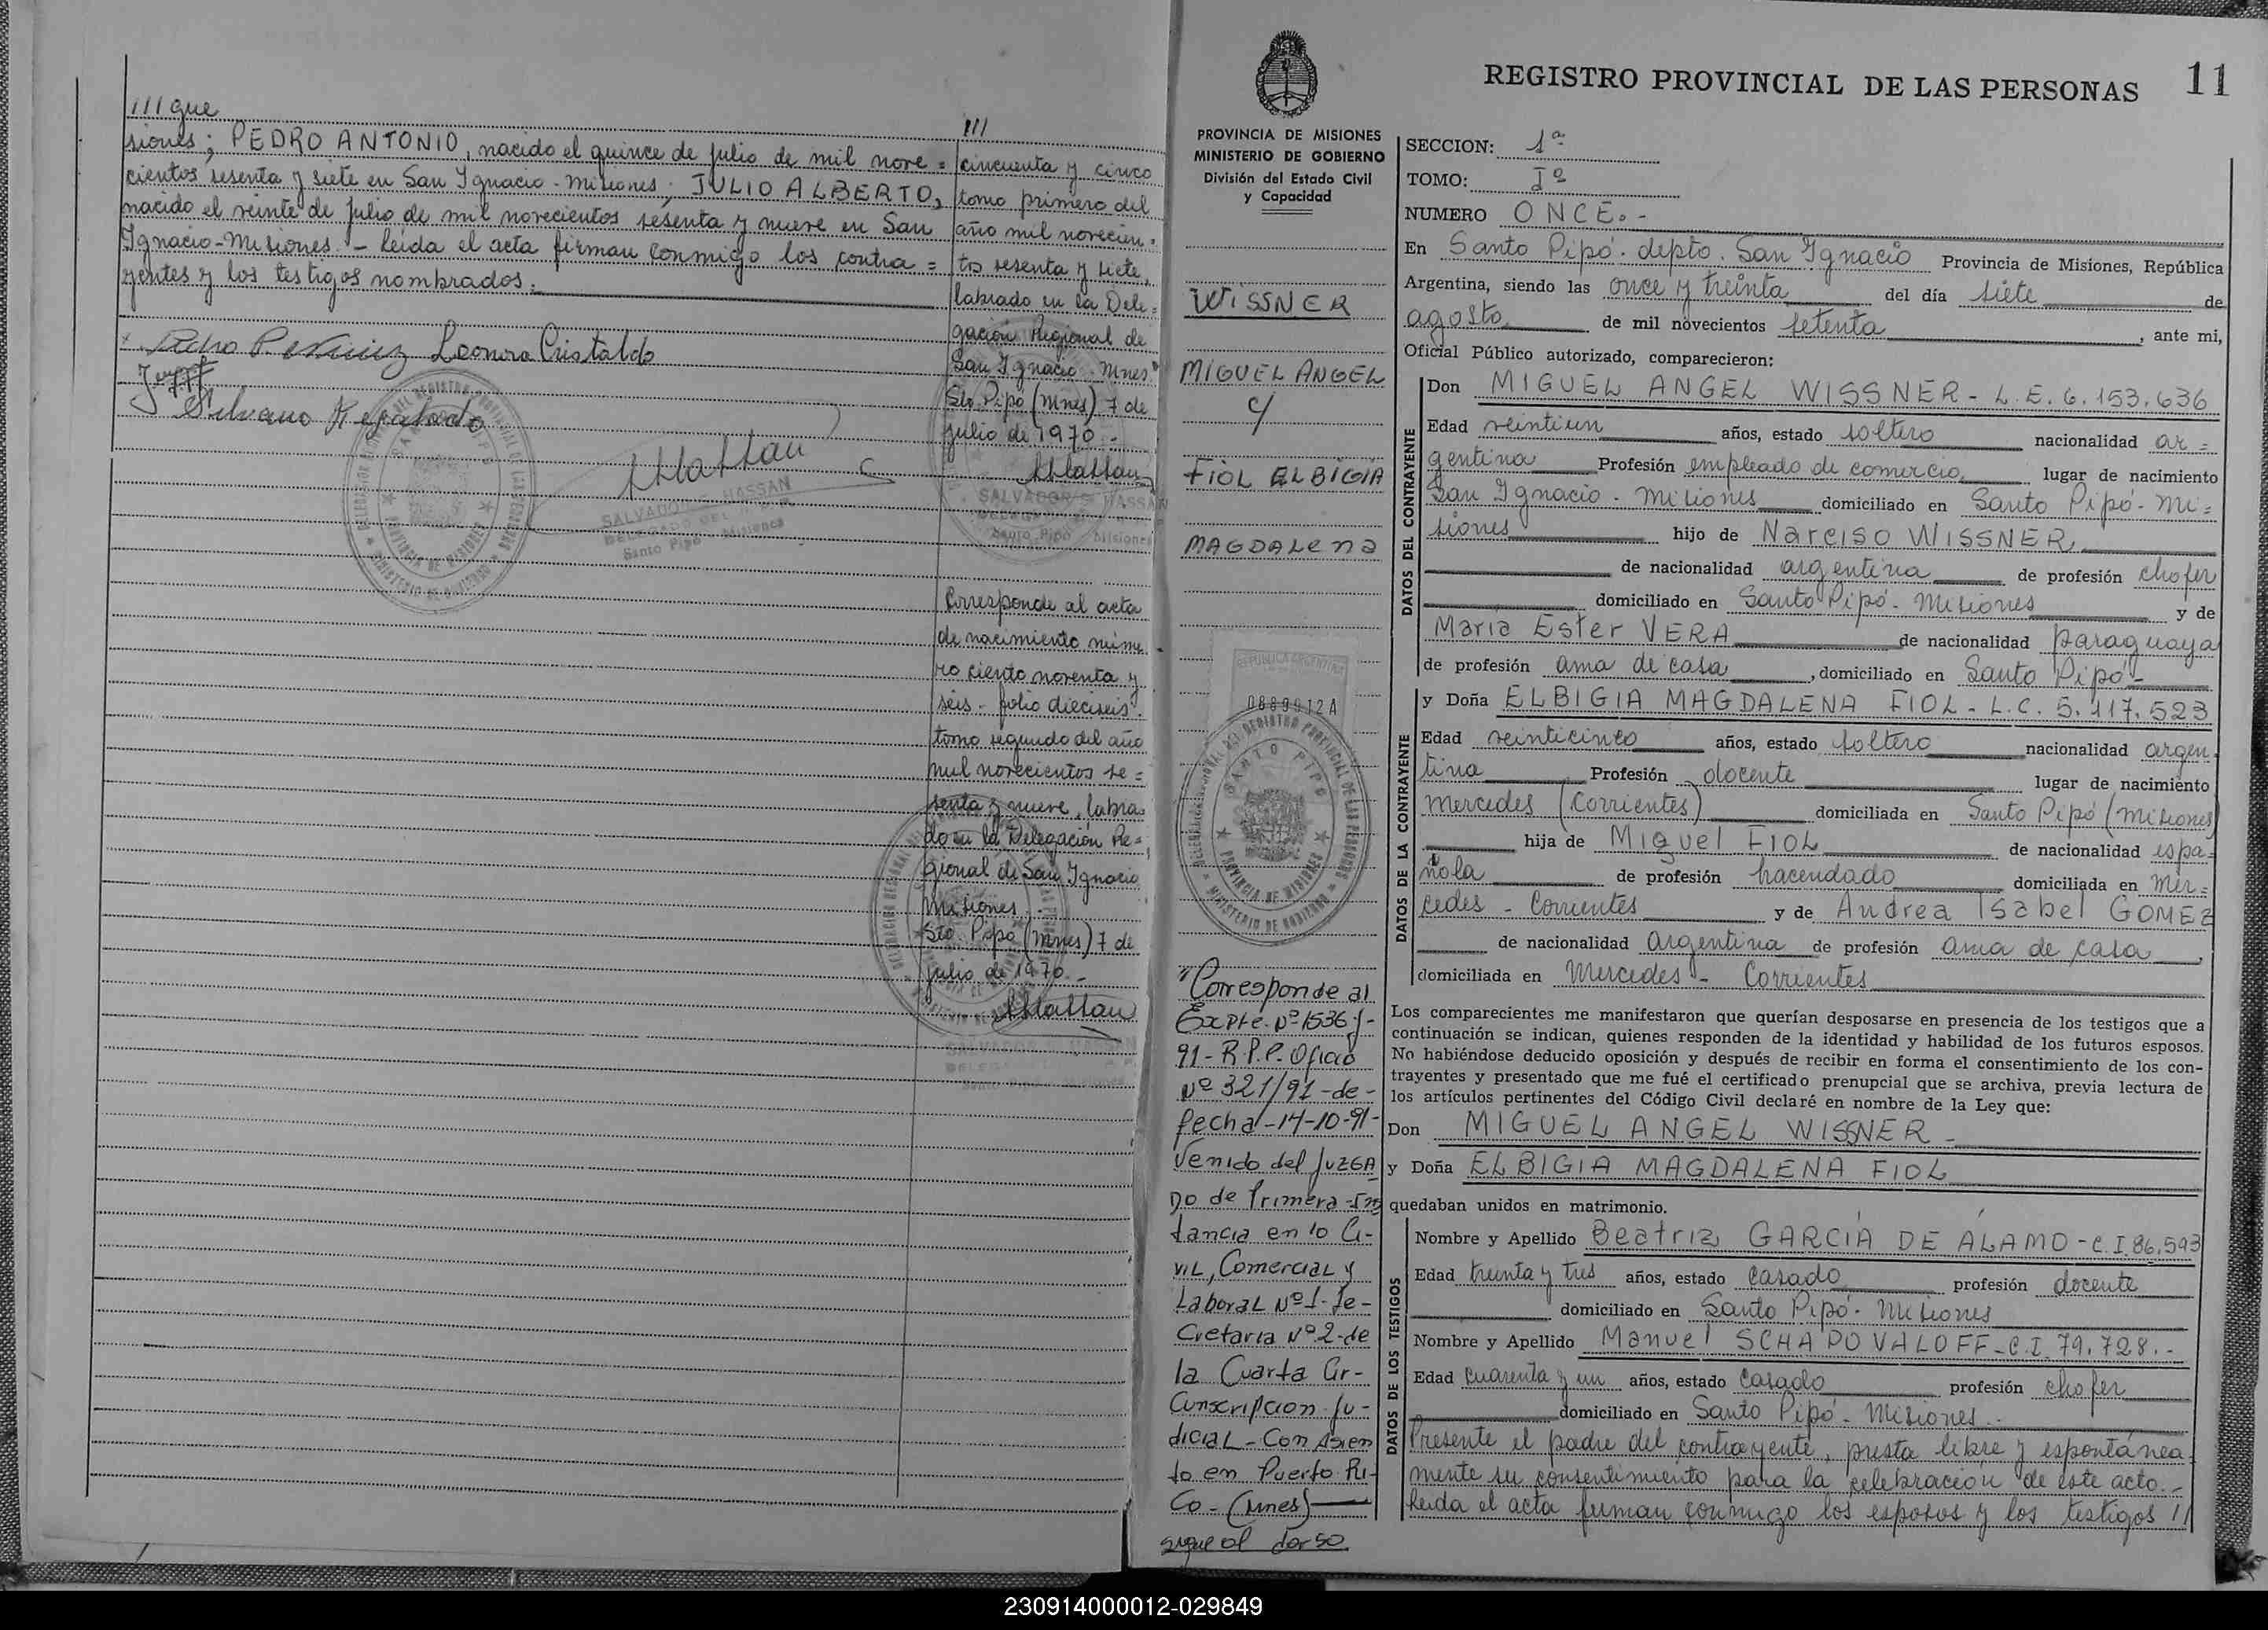 /// gue
siones; PEDRO ANTONIO, nacido el quince de julio de mil nove =
cientos sesenta y siete en San Ignacio - Misiones; JULIO ALBERTO,
nacido el veinte de julio de mil novecientos sesenta y nueve en San
Ignacio - Misiones. - Leída el acta firman conmigo los contra =
yentes y los testigos nombrados. -
Leonora Cristaldo
Silvano
SALVADOR S. HASSAN
DELEGADO DEL
Santo Pipó Misiones
///
cincuenta y cinco
tomo primero del
año mil novecien =
tos sesenta y siete,
labrado en la Dele =
gación Regional de
San Ignacio - Mnes"
Sto. Pipó (Mnes) 7 de
julio de 1970. -
SALVADOR S. HASSAN
Santo Pipó Misiones
Corresponde al acta
de nacimiento núme
ro ciento noventa y
seis - folio dieciseis -
tomo segundo del año
mil novecientos se =
senta y nueve, labra
do en la Delegación Re =
gional de San Ignacio
Misiones. -
Sto. Pipó (Mnes) 7 de
julio de 1970. -
PROVINCIA DE MISIONES
MINISTERIO DE GOBIERNO
División del Estado Civil
y Capacidad
WISSNER
MIGUEL ANGEL
c/
FIOL ELBIGIA
MAGDALENA
REPUBLICA ARGENTINA
0889912A
DELEGACION REGIONAL DEL REGISTRO PROVINCIAL DE LAS PERSONAS
SANTO PIPO
PROVINCIA DE MISIONES
MINISTERIO DE GOBIERNO
"Corresponde al
Expte. Nº 1536-J-
91 - R.P.P. Oficio
Nº 321/91 - de -
fecha - 14-10-91 -
Venido del JUZGA
DO de Primera Ins
tancia en lo Ci-
viL, ComerciaL y
LaboraL Nº 1 - Se-
cretaria Nº 2 - de
la Cuarta Cir-
cunscripcion Ju-
diciaL - Con Asien
to en Puerto Ri-
co - (Mnes)
sigue al dorso
REGISTRO PROVINCIAL DE LAS PERSONAS 11
SECCION: 1ª
TOMO: Iº
NUMERO ONCE. -
En Santo Pipó - depto. San Ignacio Provincia de Misiones, República
Argentina, siendo las once y treinta del día siete de
agosto de mil novecientos setenta, ante mi,
Oficial Público autorizado, comparecieron:
DATOS DEL CONTRAYENTE
Don MIGUEL ANGEL WISSNER - L.E. 6.153.636
Edad veintiun años, estado soltero nacionalidad ar =
gentina Profesión empleado de comercio, lugar de nacimiento
San Ignacio - Misiones domiciliado en Santo Pipó - Mi =
siones hijo de Narciso WISSNER,
de nacionalidad argentina de profesión chofer
domiciliado en Santo Pipó - Misiones y de
María Ester VERA de nacionalidad paraguaya
de profesión ama de casa, domiciliado en Santo Pipó -
DATOS DE LA CONTRAYENTE
y Doña ELBIGIA MAGDALENA FIOL - L.C. 5.117.523
Edad veinticinco años, estado soltero nacionalidad argen
tina Profesión docente lugar de nacimiento
Mercedes (Corrientes) domiciliada en Santo Pipó (Misiones)
hija de Miguel FIOL de nacionalidad espa =
ñola de profesión hacendado domiciliada en Mer =
cedes - Corrientes y de Andrea Isabel GOMEZ
de nacionalidad argentina de profesión ama de casa,
domiciliada en Mercedes - Corrientes
Los comparecientes me manifestaron que querían desposarse en presencia de los testigos que a
continuación se indican, quienes responden de la identidad y habilidad de los futuros esposos.
No habiéndose deducido oposición y después de recibir en forma el consentimiento de los con-
trayentes y presentado que me fué el certificado prenupcial que se archiva, previa lectura de
los artículos pertinentes del Código Civil declaré en nombre de la Ley que:
Don MIGUEL ANGEL WISSNER -
y Doña ELBIGIA MAGDALENA FIOL
quedaban unidos en matrimonio.
DATOS DE LOS TESTIGOS
Nombre y Apellido Beatriz GARCÍA DE ÁLAMO - C.I. 86.593
Edad treinta y tres años, estado casado profesión docente
domiciliado en Santo Pipó - Misiones
Nombre y Apellido Manuel SCHAPOVALOFF - C.I. 79.728. -
Edad cuarenta y un años, estado casado profesión chofer
domiciliado en Santo Pipó - Misiones. -
Presente el padre del contrayente, presta libre y espontánea
mente su consentimiento para la celebración de este acto. -
Leida el acta firman conmigo los esposos y los testigos //
230914000012-029849